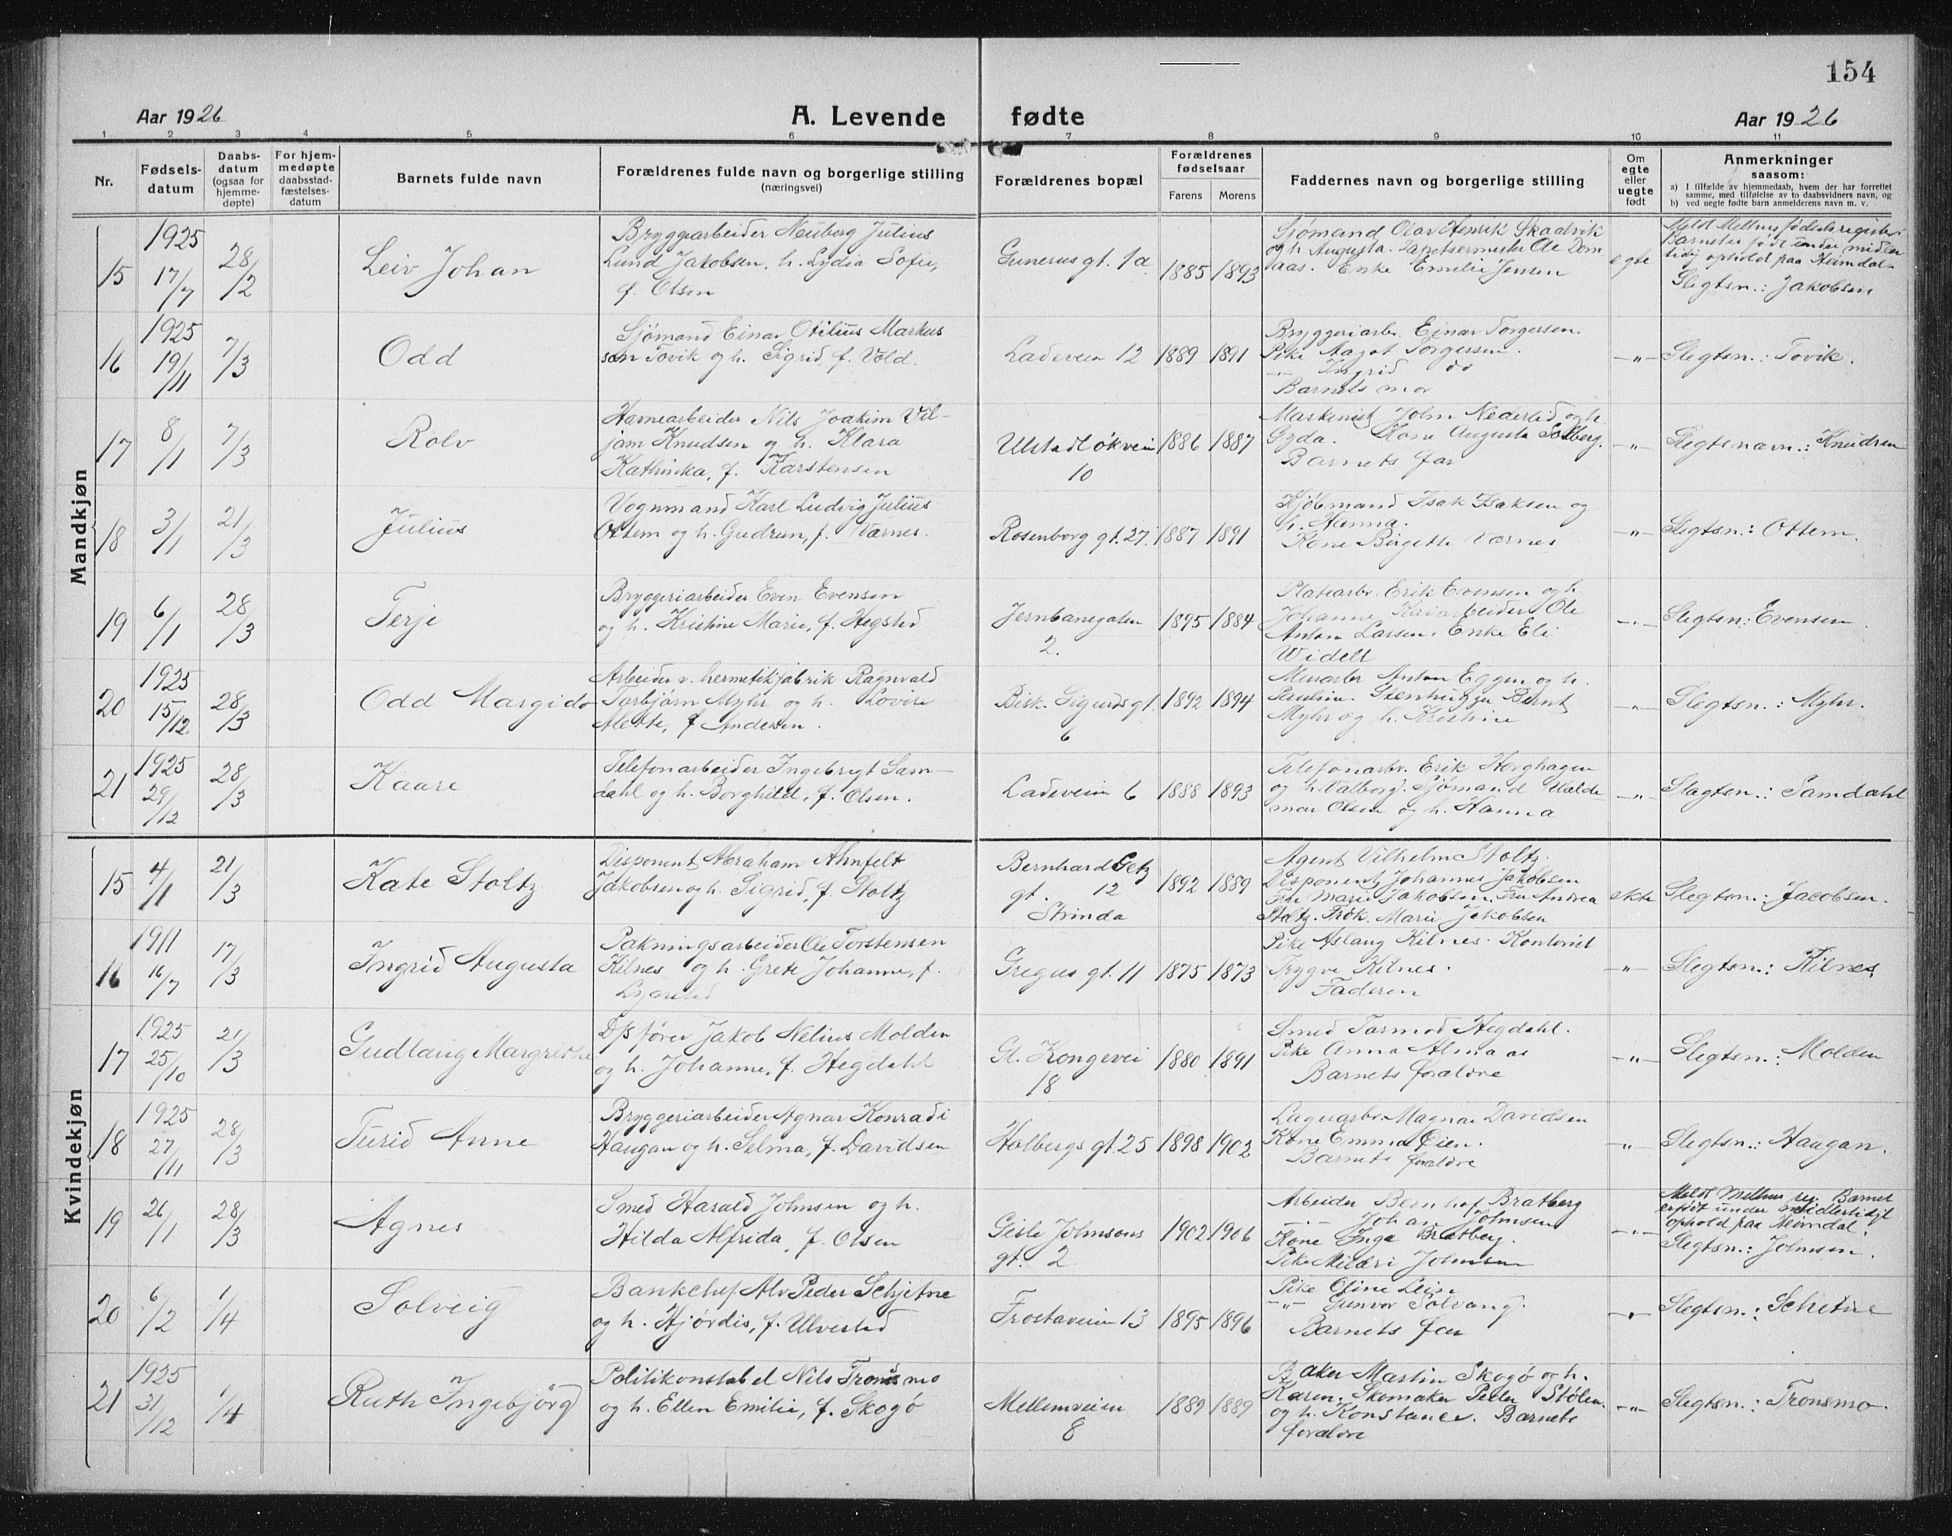 154
Aar 1926
A. Levende fødte
Aar 1926
1 2 3 4 5 6 7 8 9 10 11
Nr.
Fødsels-
datum
Daabs-
datum
(ogsaa for
hjemme-
døpte)
For hjem-
medøpte
daabsstad-
fæstelses-
datum
Barnets fulde navn
Forældrenes fulde navn og borgerlige stilling
(næringsvei)
Forældrenes bopæl
Forældrenes
fødselsaar
Farens Morens
Faddernes navn og borgerlige stilling
Om
egte
eller
uegte
født
Anmerkninger
saasom:
a) I tilfælde av hjemmedaab, hvem der har forrettet
samme, med tilføielse av to daabsvidners navn, og
b) ved uegte fødte barn anmelderens navn m. v.
Mandkjøn
15
1925
17/7
28/2
Leiv Johan
Bryggearbeider Neuberg Julius
Lund Jakobsen, h. Lydia Sofie,
f. Olsen
Gunerus gt. 1a
1885 1893
Sjømand Olav Henrik Skaalvik
og h. Augusta. Tapetsermester Ole Dom
aas. Enke Emilie Jensen
egte
Meldt Melhus fødselsregister.
Barnet er født under midler
tidig ophold paa Heimdal.
Slegtsn.: Jakobsen
16
1925
19/11
7/3
Odd
Sjømand Einar Otilius Markus
sen Tovik og h. Sigrid, f. Vold.
Ladeveien 12
1889 1891
Bryggeriarb. Einar Torgersen.
Pike Aagot Torgersen.
-"- Ingrid do
Barnets mor
-"-
Slegtsn.: Tovik.
17
8/1
7/3
Rolv
Havnearbeider Nils Joakim Vil-
jam Knudsen og h. Klara
Kathinka, f. Karstensen
Ulstadløkvein
10
1886 1887
Maskinist John Nederlid og h.
Gyda. Kone Augusta Solberg.
Barnets far
-"-
Slegtsnavn.: Knudsen
18
3/1
21/3
Julius
Vognmand Karl Ludvig Julius
Ottem og h. Gudrun, f. Værnes.
Rosenborg gt. 27.
1887 1891
Kjøbmand Isak Isaksen og
h. Hanna.
Kone Birgethe Værnes
-"-
Slegtsn.: Ottem.
19
6/1
28/3
Terje
Bryggeriarbeider Even Evensen
og h. Kristine Marie, f. Hegstad
Jernbanegaten
2.
1895 1884
Platearb. Erik Evensen og h.
Johanne. Kaiarbeider Ole
Anton Larsen. Enke Eli
Widell
-"-
Slegtsn.: Evensen.
20
1925
15/12
28/3
Odd Margido
Arbeider v. hermetikfabrik Ragnvald
Torbjørn Myhr og h. Lovise
Alette, f. Andersen.
Bisk. Sigurds gt.
6
1892 1894
Murarb Anton Eggen og h.
Pauline. Stenhugger Bernt
Myhr og h. Kristine
-"-
Slegtsn.: Myhr.
21
1925
29/12
28/3
Kaare
Telefonarbeider Ingebrigt Sam-
dahl og h. Borghild, f. Olsen.
Ladeveien 6
1888 1893
Telefonarb. Erik Horghagen
og h. Valborg. Sjømand Valde-
mar Olsen og h. Hanna
-"-
Slagtsn.: Samdahl
Kvindekjøn
15
4/1
21/3
Kate Stoltz
Disponent Abraham Ahnfelt
Jakobsen og h. Sigrid, f. Stoltz
Bernhard Getz
gt. 12
Strinda
1892 1889
Agent Vilhelm Stoltz.
Disponent Johannes Jakobsen
Frk Marie Jakobsen. Fru Andrea
Stoltz. Frøk. Marie Jakobsen
ekte
Slegtsn.: Jacobsen.
16
1911
16/7
17/3
Ingrid Augusta
Pakningsarbeider Ole Torstensen
Kilnes og h. Grete Johanne, f.
Gregus gt. 11
1875 1873
Pike Aslaug Kilnes. Kontorist
Trygve Kilnes.
Faderen
-"-
Slegtsn.: Kilnes.
17
1925
25/10
21/3
Gudlaug Margrethe
D/s fører Jakob Nelius Molden
og h. Johanne, f. Hegdahl
Gl. Kongevei
18
1880 1891
Smed Tormod Hegdahl.
Pike Anna Almaas
Barnets forældre
-"-
Slegtsn.: Molden
18
1925
27/11
28/3
Turid Anne
Bryggeriarbeider Agnar Konradi
Haugan og h. Selma, f. Davidsen
Holbergs gt. 25
1898 1902
Lagerarb. Magnar Davidsen
Kone Emma Øien.
Barnets forældre
-"-
Slegtsn.: Haugan.
19
26/1
28/3
Agnes
Smed Harald Johnsen og h.
Hilda Alfrida, f. Olsen
Gisle Johnsons
gt. 2
1902 1906
Arbeider Bernhof Bratberg
-"- Johan Johnsen
Kone Inga Bratberg.
Pike Mildri Johnsen
-"-
Meldt Melhus reg. Barnet
er født under midlertidigt
ophold paa Heimdal.
Slegtsn.: Johnsen.
20
6/2
1/4
Solveig
Bankchef Alv Peder Schjetne
og h. Hjørdis, f. Ulvestad
Frostaveien 13
1895 1896
Pike Oline Lein
-"- Gunvor Solvang.
Barnets far
-"-
Slegtsn.: Schetne
21
1925
31/12
1/4
Ruth Ingebjörg
Politikonstabel Nils Tronsmo
og h. Ellen Emilie, f. Skogø
Mellemveien
8
1889 1889
Baker Martin Skogø og h.
Karen. Skomaker Peter Stølen
og h. Konstance. Barnets
forældre
-"-
Slegtsn.: Tronsmo.